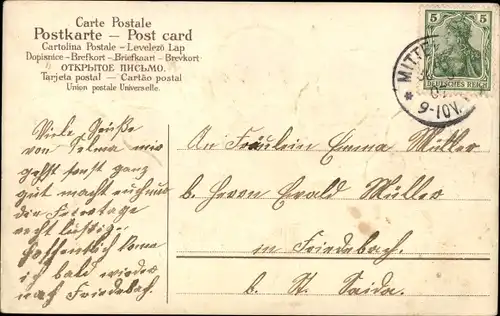 Carte Postale
Postkarte — Post card
Cartolina Postale — Levelező Lap
Dopisnice — Brefkort — Briefkaart — Brevkort
ОТКРЫТОЕ ПИСЬМО.
Tarjeta postal — Cartão postal
Union postale Universelle.
5 5
DEUTSCHES REICH
MITTE
9-10V.
Viele Grüße
von Selma mir
gehts sonst ganz
gut macht euch nur
die Feiertage
recht lustig.
Hoffentlich komme
ich bald wieder
nach Friedebach.
An Fräulein Emma Müller
b. Herrn Ewald Müller
in Friedebach.
b. St. Saida.